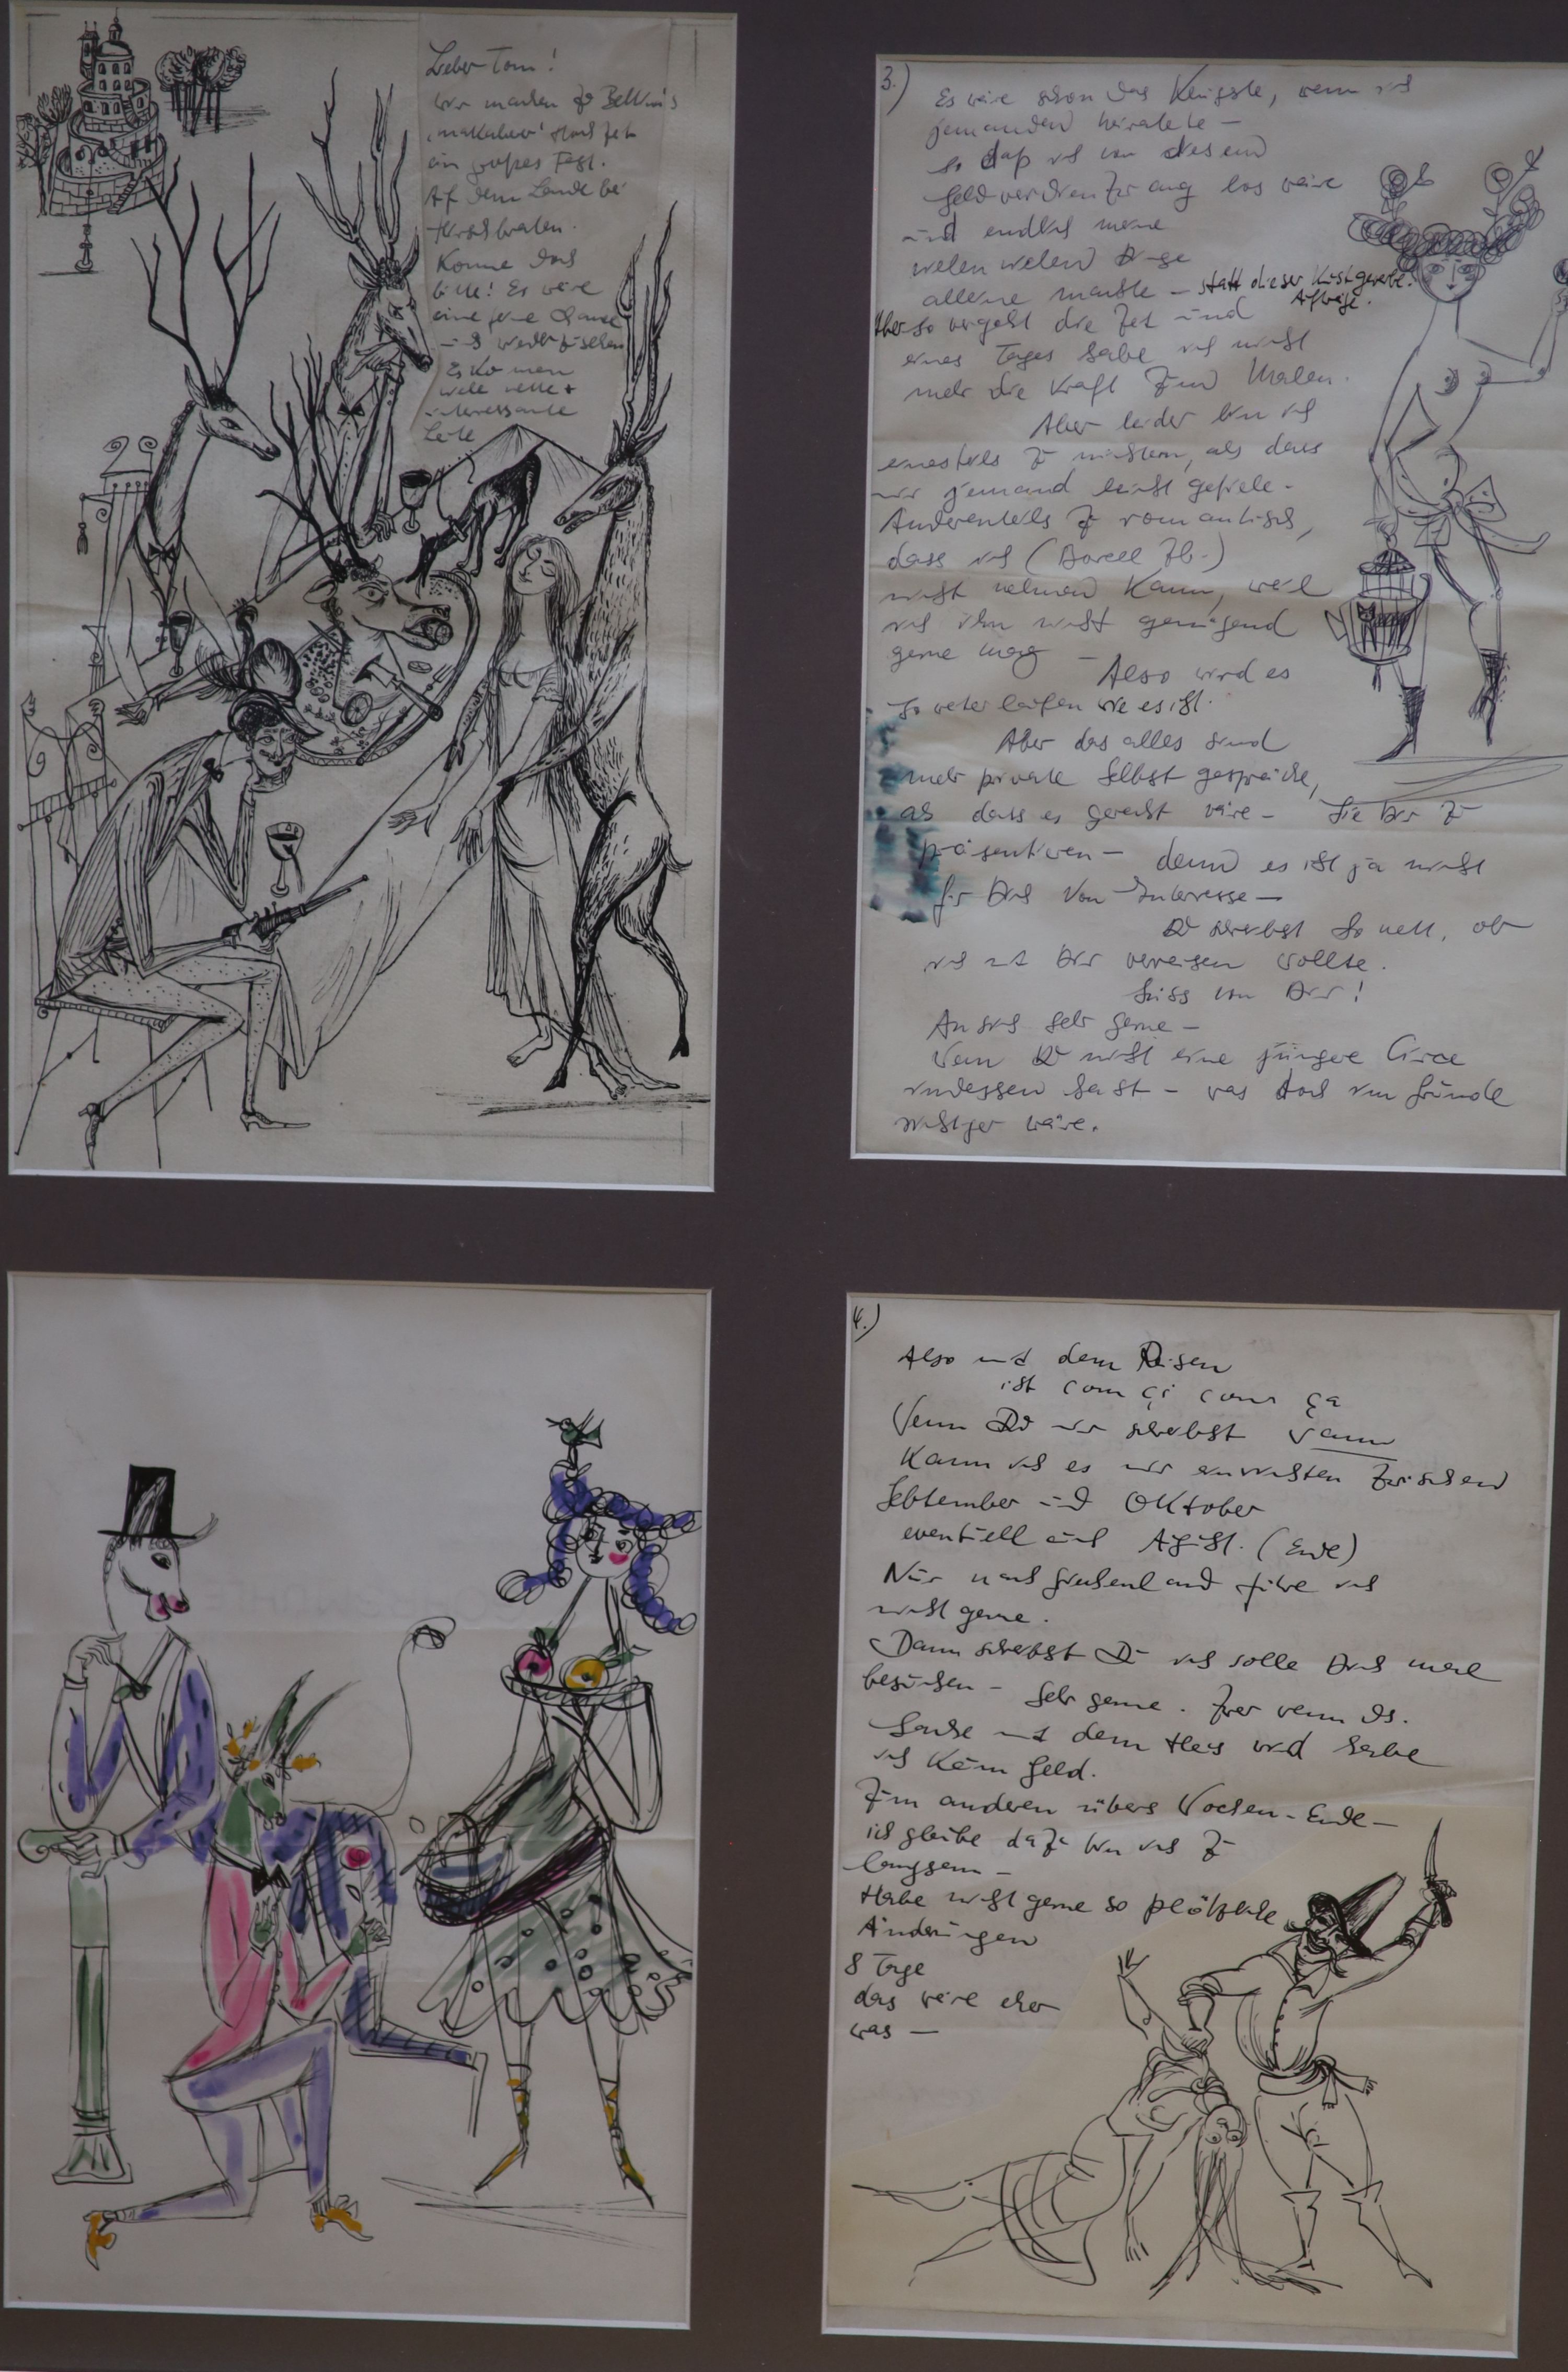 Lieber Tom!
wir machen zu Bellinis
makaber Hochzeit
ein großes Fest.
Auf dem Lande bei
Hirschbraten.
Komme doch
bitte! Es wäre
eine feine Chance
uns wiederzusehen
Es kommen
viele nette +
interessante
Leute
3.)
Es wäre schon das Klügste, wenn ich
jemanden heiratete —
so daß ich von diesem
Geldverdienzwang los wäre
und endlich meine
vielen vielen Dinge
alleine machte — statt dieser Kunstgewerbe.
Aufträge.
Aber so vergeht die Zeit und
eines Tages habe ich nicht
mehr die Kraft zum Malen.
Aber leider bin ich
einesteils zu nüchtern, als dass
mir jemand leicht gefiele —
Anderenteils zu romantisch,
dass ich ( zb.)
nicht nehmen kann, weil
ich ihn nicht genügend
gerne mag —
Also wird es
so weiter laufen wie es ist.
Aber das alles sind
mehr private Selbst gespräche,
als dass es gerecht wäre — Sie Dir zu
präsentieren — denn es ist ja nicht
für Dich von Interesse —
Du schreibst so nett, ob
ich mit Dir verreisen wollte.
Süss von Dir!
An sich sehr gerne —
Wenn Du nicht eine jüngere Circe
indessen hast — was doch im Grunde
richtiger wäre.
4.)
Also mit dem Reisen
ist com çi com ça
Wenn Du mir schreibst wann
kann ich es mir einrichten zwischen
September und Oktober
eventuell auch August. (Ende)
Nur nach Griechenland führe ich
nicht gerne.
Dann schreibst Du ich solle Dich mal
besuchen — sehr gerne. Zwar wenn ds.
Sache mit dem Haus wird habe
ich kein Geld.
Zum anderen übers Wochen-Ende —
ich glaube dazu bin ich zu
langsam —
Habe nicht gerne so plötzliche
Änderungen
8 Tage
das wäre eher
was —